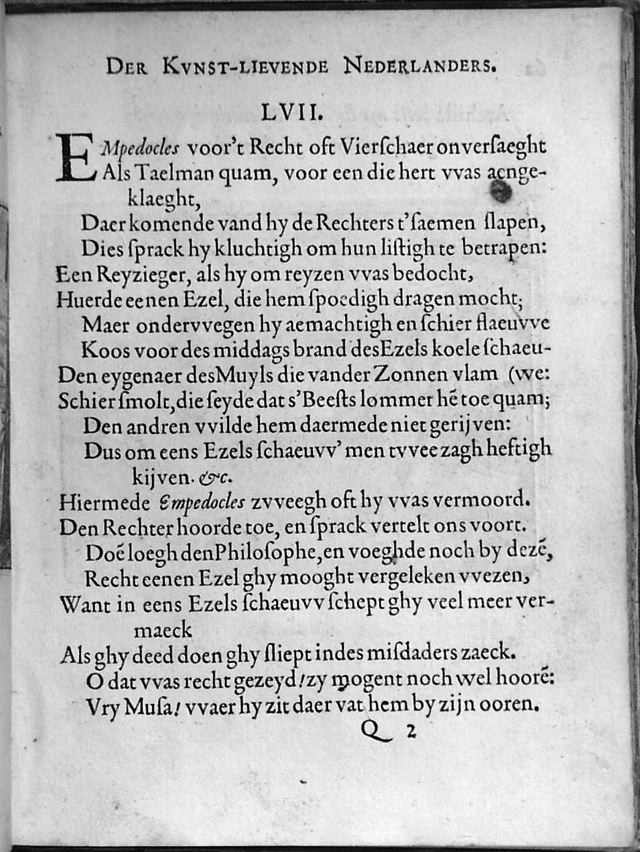 DER KVNST-LIEVENDE NEDERLANDERS.
LVII.
EMpedocles voor't Recht oft Vierschaer onversaeght
Als Taelman quam, voor een die hert vvas aenge-
klaeght,
Daer komende vand hy de Rechters t'saemen slapen,
Dies sprack hy kluchtigh om hun listigh te betrapen:
Een Reyzieger, als hy om reyzen vvas bedocht,
Huerde eenen Ezel, die hem spoedigh dragen mocht;
Maer ondervvegen hy aemachtigh en schier flaeuvve
Koos voor des middags brand des Ezels koele schaeu-
Den eygenaer des Muyls die vander Zonnen vlam (we:
Schier smolt, die seyde dat s'Beests lommer hē toe quam;
Den andren vvilde hem daermede niet gerijven:
Dus om eens Ezels schaeuvv' men tvvee zagh heftigh
kijven. &c.
Hiermede Empedocles zvveegh oft hy vvas vermoord.
Den Rechter hoorde toe, en sprack vertelt ons voort.
Doē loegh den Philosophe, en voeghde noch by dezē,
Recht eenen Ezel ghy mooght vergeleken vvezen,
Want in eens Ezels schaeuvv schept ghy veel meer ver-
maeck
Als ghy deed doen ghy sliept indes misdaders zaeck.
O dat vvas recht gezeyd! zy mogent noch wel hoorē:
Vry Musa! vvaer hy zit daer vat hem by zijn ooren.
Q 2